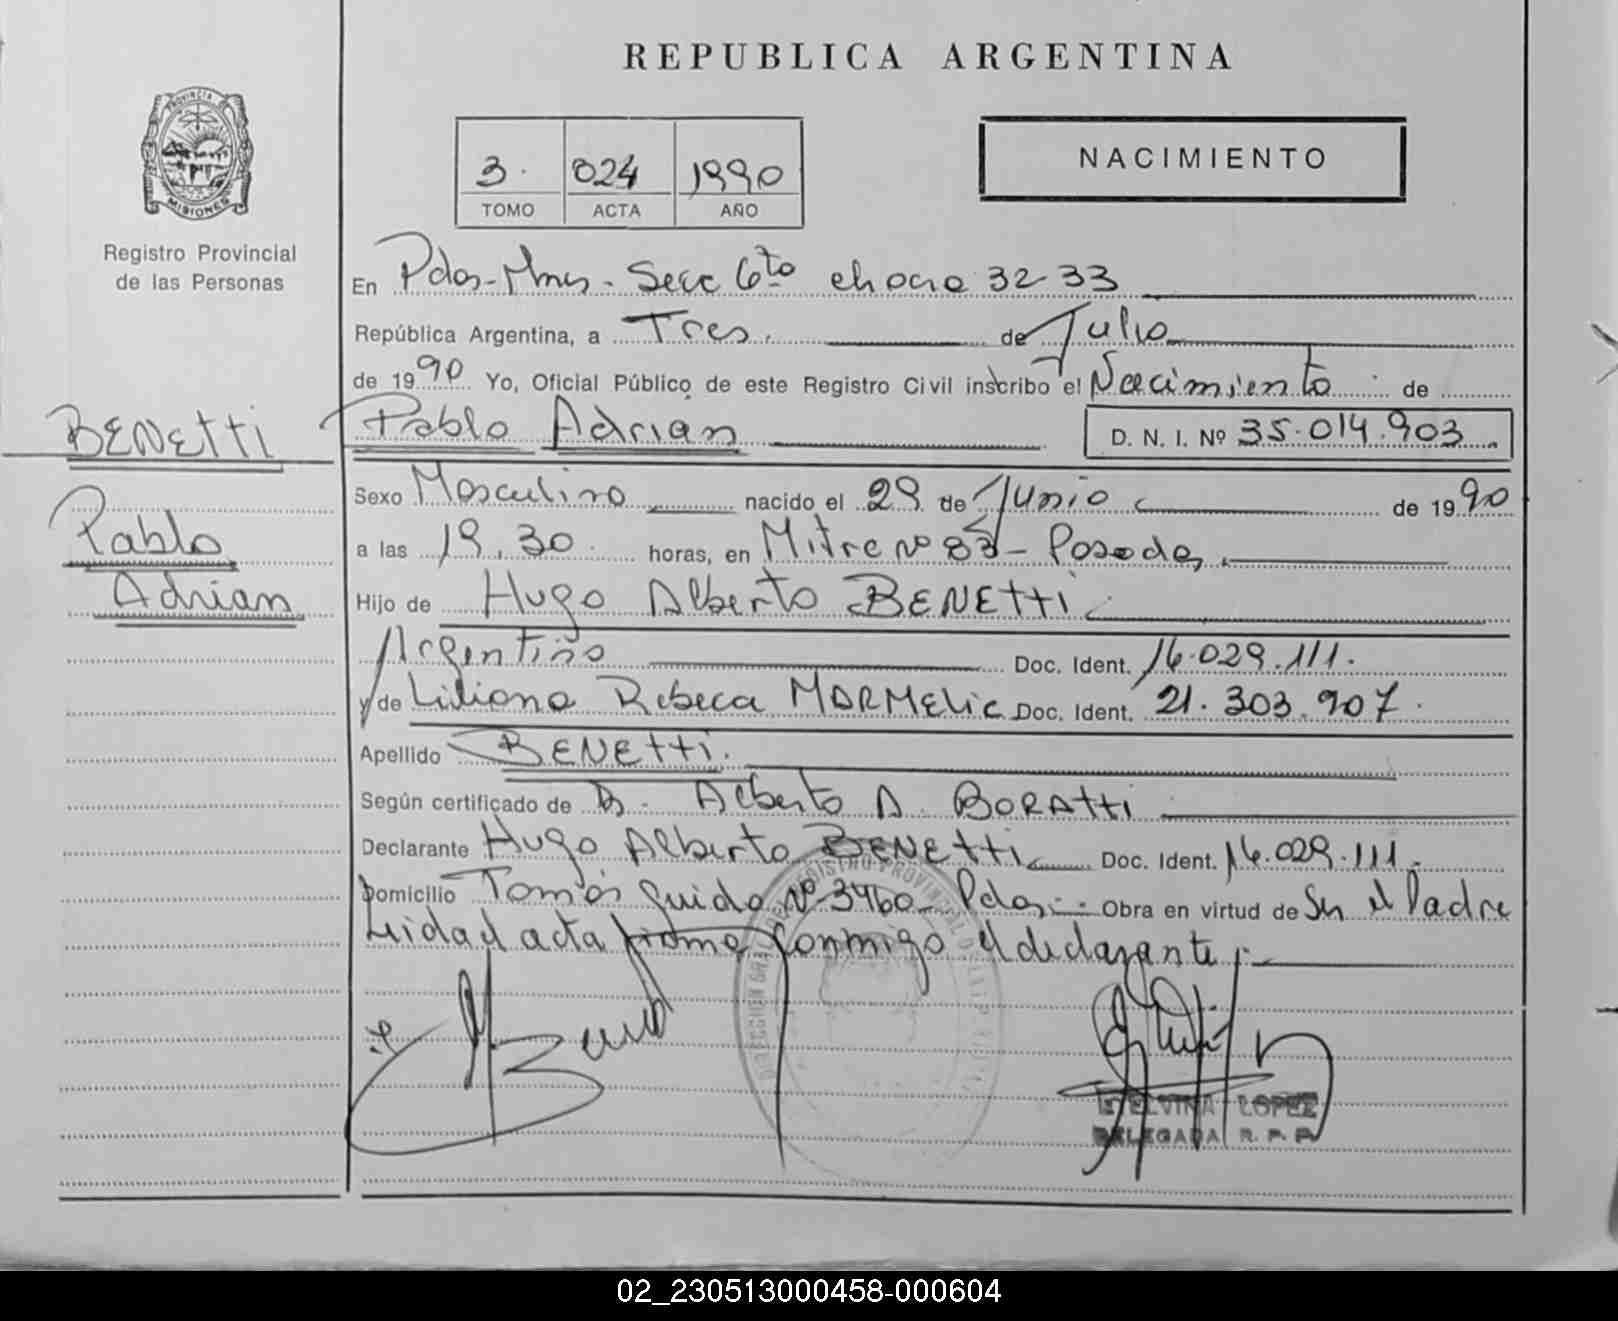 REPUBLICA ARGENTINA
PROVINCIA DE
MISIONES
Registro Provincial
de las Personas
3. 024 1990
TOMO ACTA AÑO
NACIMIENTO
En Pdas-Mnes- Secc 6to chacra 32-33
República Argentina, a Tres. de Julio
de 1990 Yo, Oficial Público de este Registro Civil inscribo el Nacimiento de
Pablo Adrián D. N. I. Nº 35.014.903
BENETTI
Pablo
Adrian
Sexo Masculino nacido el 29 de Junio de 1990
a las 19,30 horas, en Mitre nº 83- Posadas
Hijo de Hugo Alberto BENETTI
Argentino Doc. Ident. 16.029.111.
y de Liliana Rebeca Doc. Ident. 21.303.907.
Apellido BENETTI.
Según certificado de Dr. Alberto A. BORATTI
Declarante Hugo Alberto BENETTI Doc. Ident. 16.029.111.
Domicilio Tomás Guido Nº 3460- Pdas.- Obra en virtud de Ser el Padre
Leida el acta firma conmigo el declarante.-
ELVIRA LOPEZ
DELEGADA R. P. P.
02_230513000458-000604